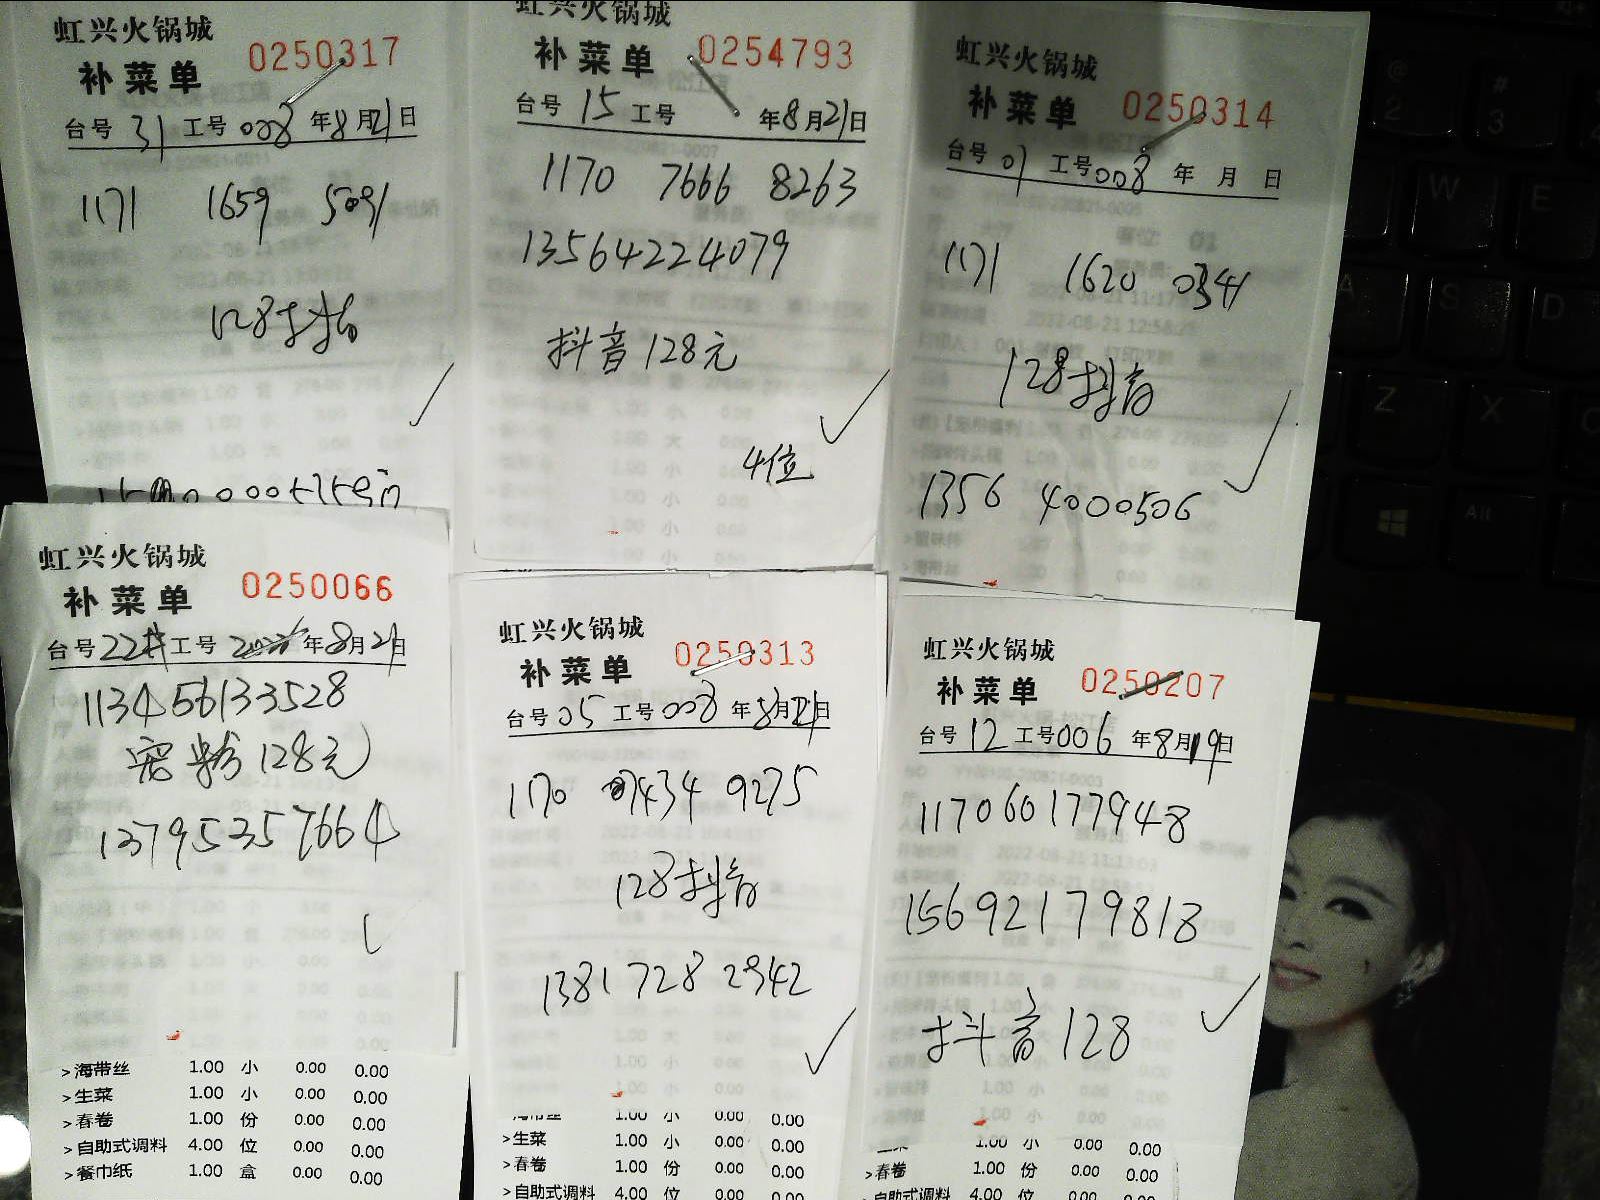 虹兴火锅城
补菜单 0250317
台号 31 工号 008 年8月21日
1171 1659 5091
128抖音
虹兴火锅城
补菜单 0254793
台号 15 工号 年8月21日
1170 7666 8263
13564224079
抖音128元
4位
虹兴火锅城
补菜单 0250314
台号 01 工号 008 年 月 日
1171 1620 0341
128抖音
1356 4000506
虹兴火锅城
补菜单 0250066
台号 22 工号 年8月21日
113456133528
宠粉128元
13795357664
>海带丝 1.00 小 0.00 0.00
>生菜 1.00 小 0.00 0.00
>春卷 1.00 份 0.00 0.00
>自助式调料 4.00 位 0.00 0.00
>餐巾纸 1.00 盒 0.00 0.00
虹兴火锅城
补菜单 0250313
台号 05 工号 008 年8月21日
1170 7434 9275
128抖音
1381728 2942
海带丝 1.00 小 0.00 0.00
>生菜 1.00 小 0.00 0.00
>春卷 1.00 份 0.00 0.00
>自助式调料 4.00 位 0.00 0.00
虹兴火锅城
补菜单 0250207
台号 12 工号 006 年8月19日
117060177948
15692179818
抖音128
1.00 小 0.00 0.00
>春卷 1.00 份 0.00 0.00
>自助式调料 4.00 位 0.00 0.00